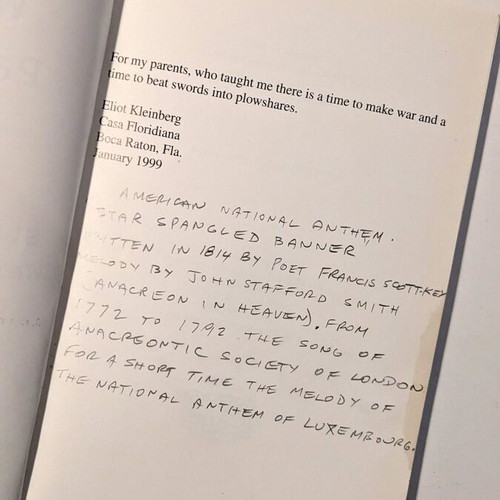 For my parents, who taught me there is a time to make war and a
time to beat swords into plowshares.
Eliot Kleinberg
Casa Floridiana
Boca Raton, Fla.
January 1999
AMERICAN NATIONAL ANTHEM.
STAR SPANGLED BANNER
WRITTEN IN 1814 BY POET FRANCIS SCOTT-KEY
MELODY BY JOHN STAFFORD SMITH
(ANACREON IN HEAVEN). FROM
1772 TO 1792 THE SONG OF
ANACREONTIC SOCIETY OF LONDON
FOR A SHORT TIME THE MELODY OF
THE NATIONAL ANTHEM OF LUXEMBOURG.